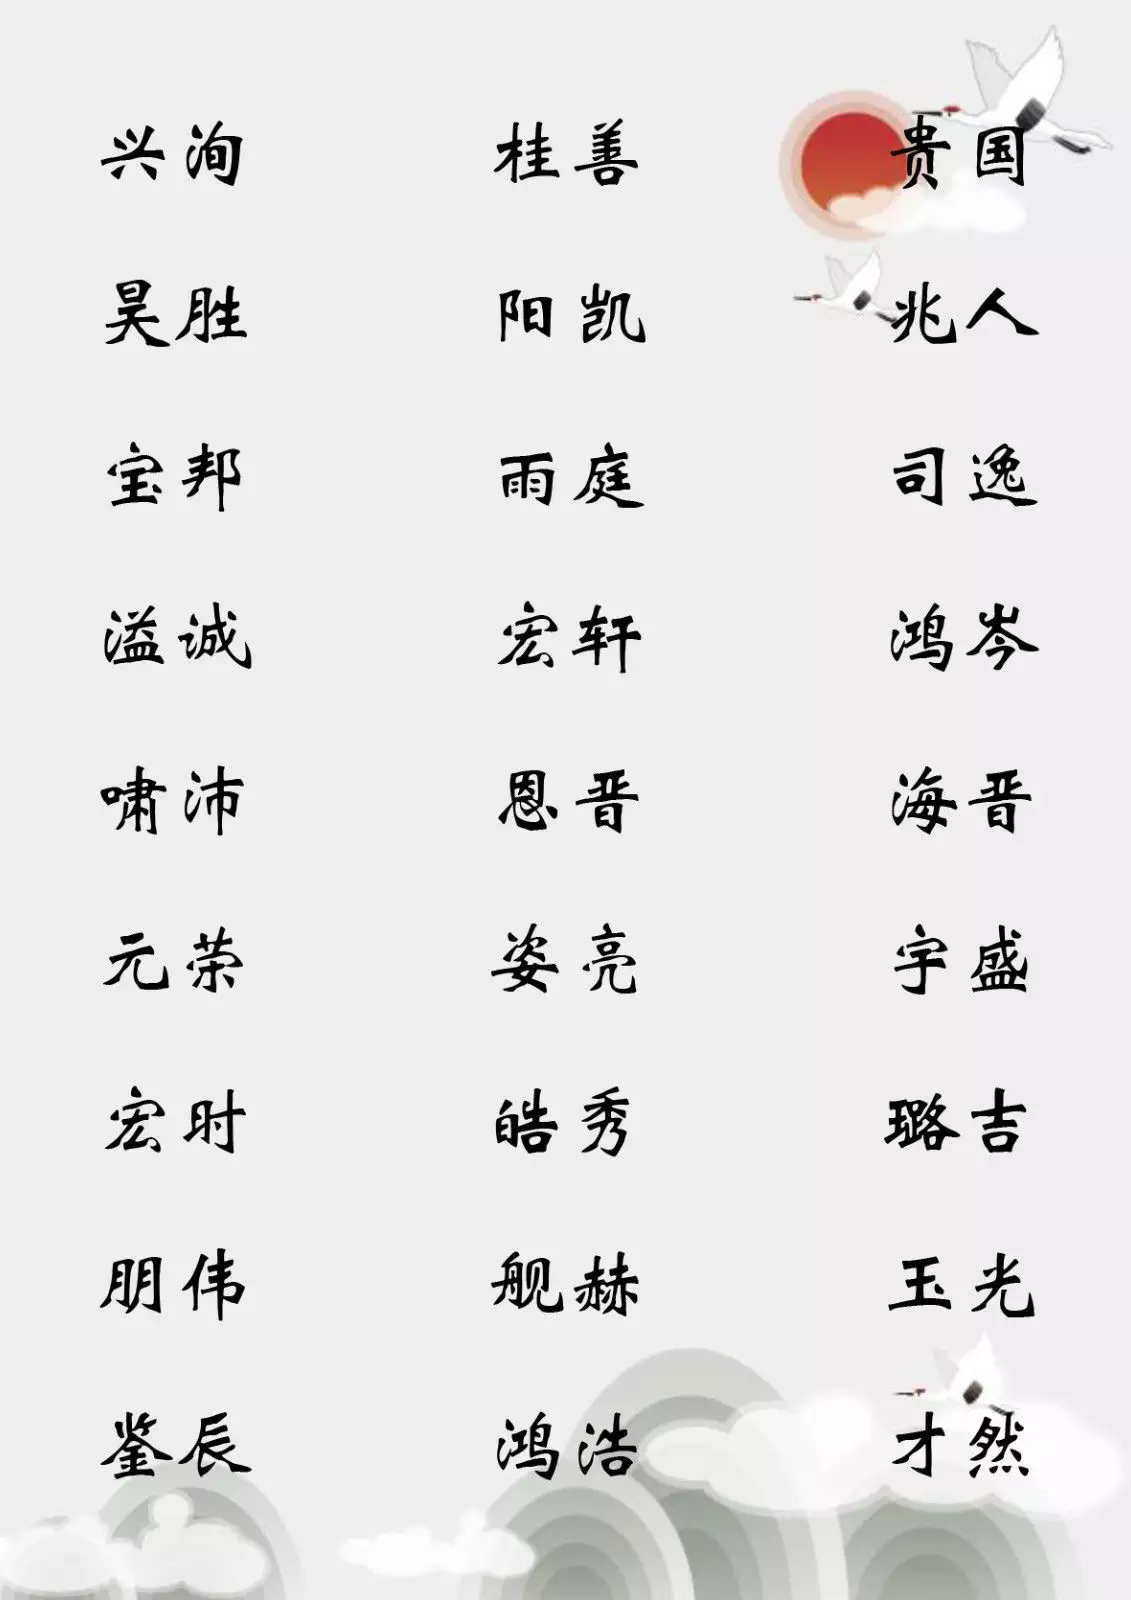 兴洵 桂善 贵国
昊胜 阳凯 兆人
宝邦 雨庭 司逸
溢诚 宏轩 鸿岑
啸沛 恩晋 海晋
元荣 姿亮 宇盛
宏时 皓秀 璐吉
朋伟 舰赫 玉光
鉴辰 鸿浩 才然